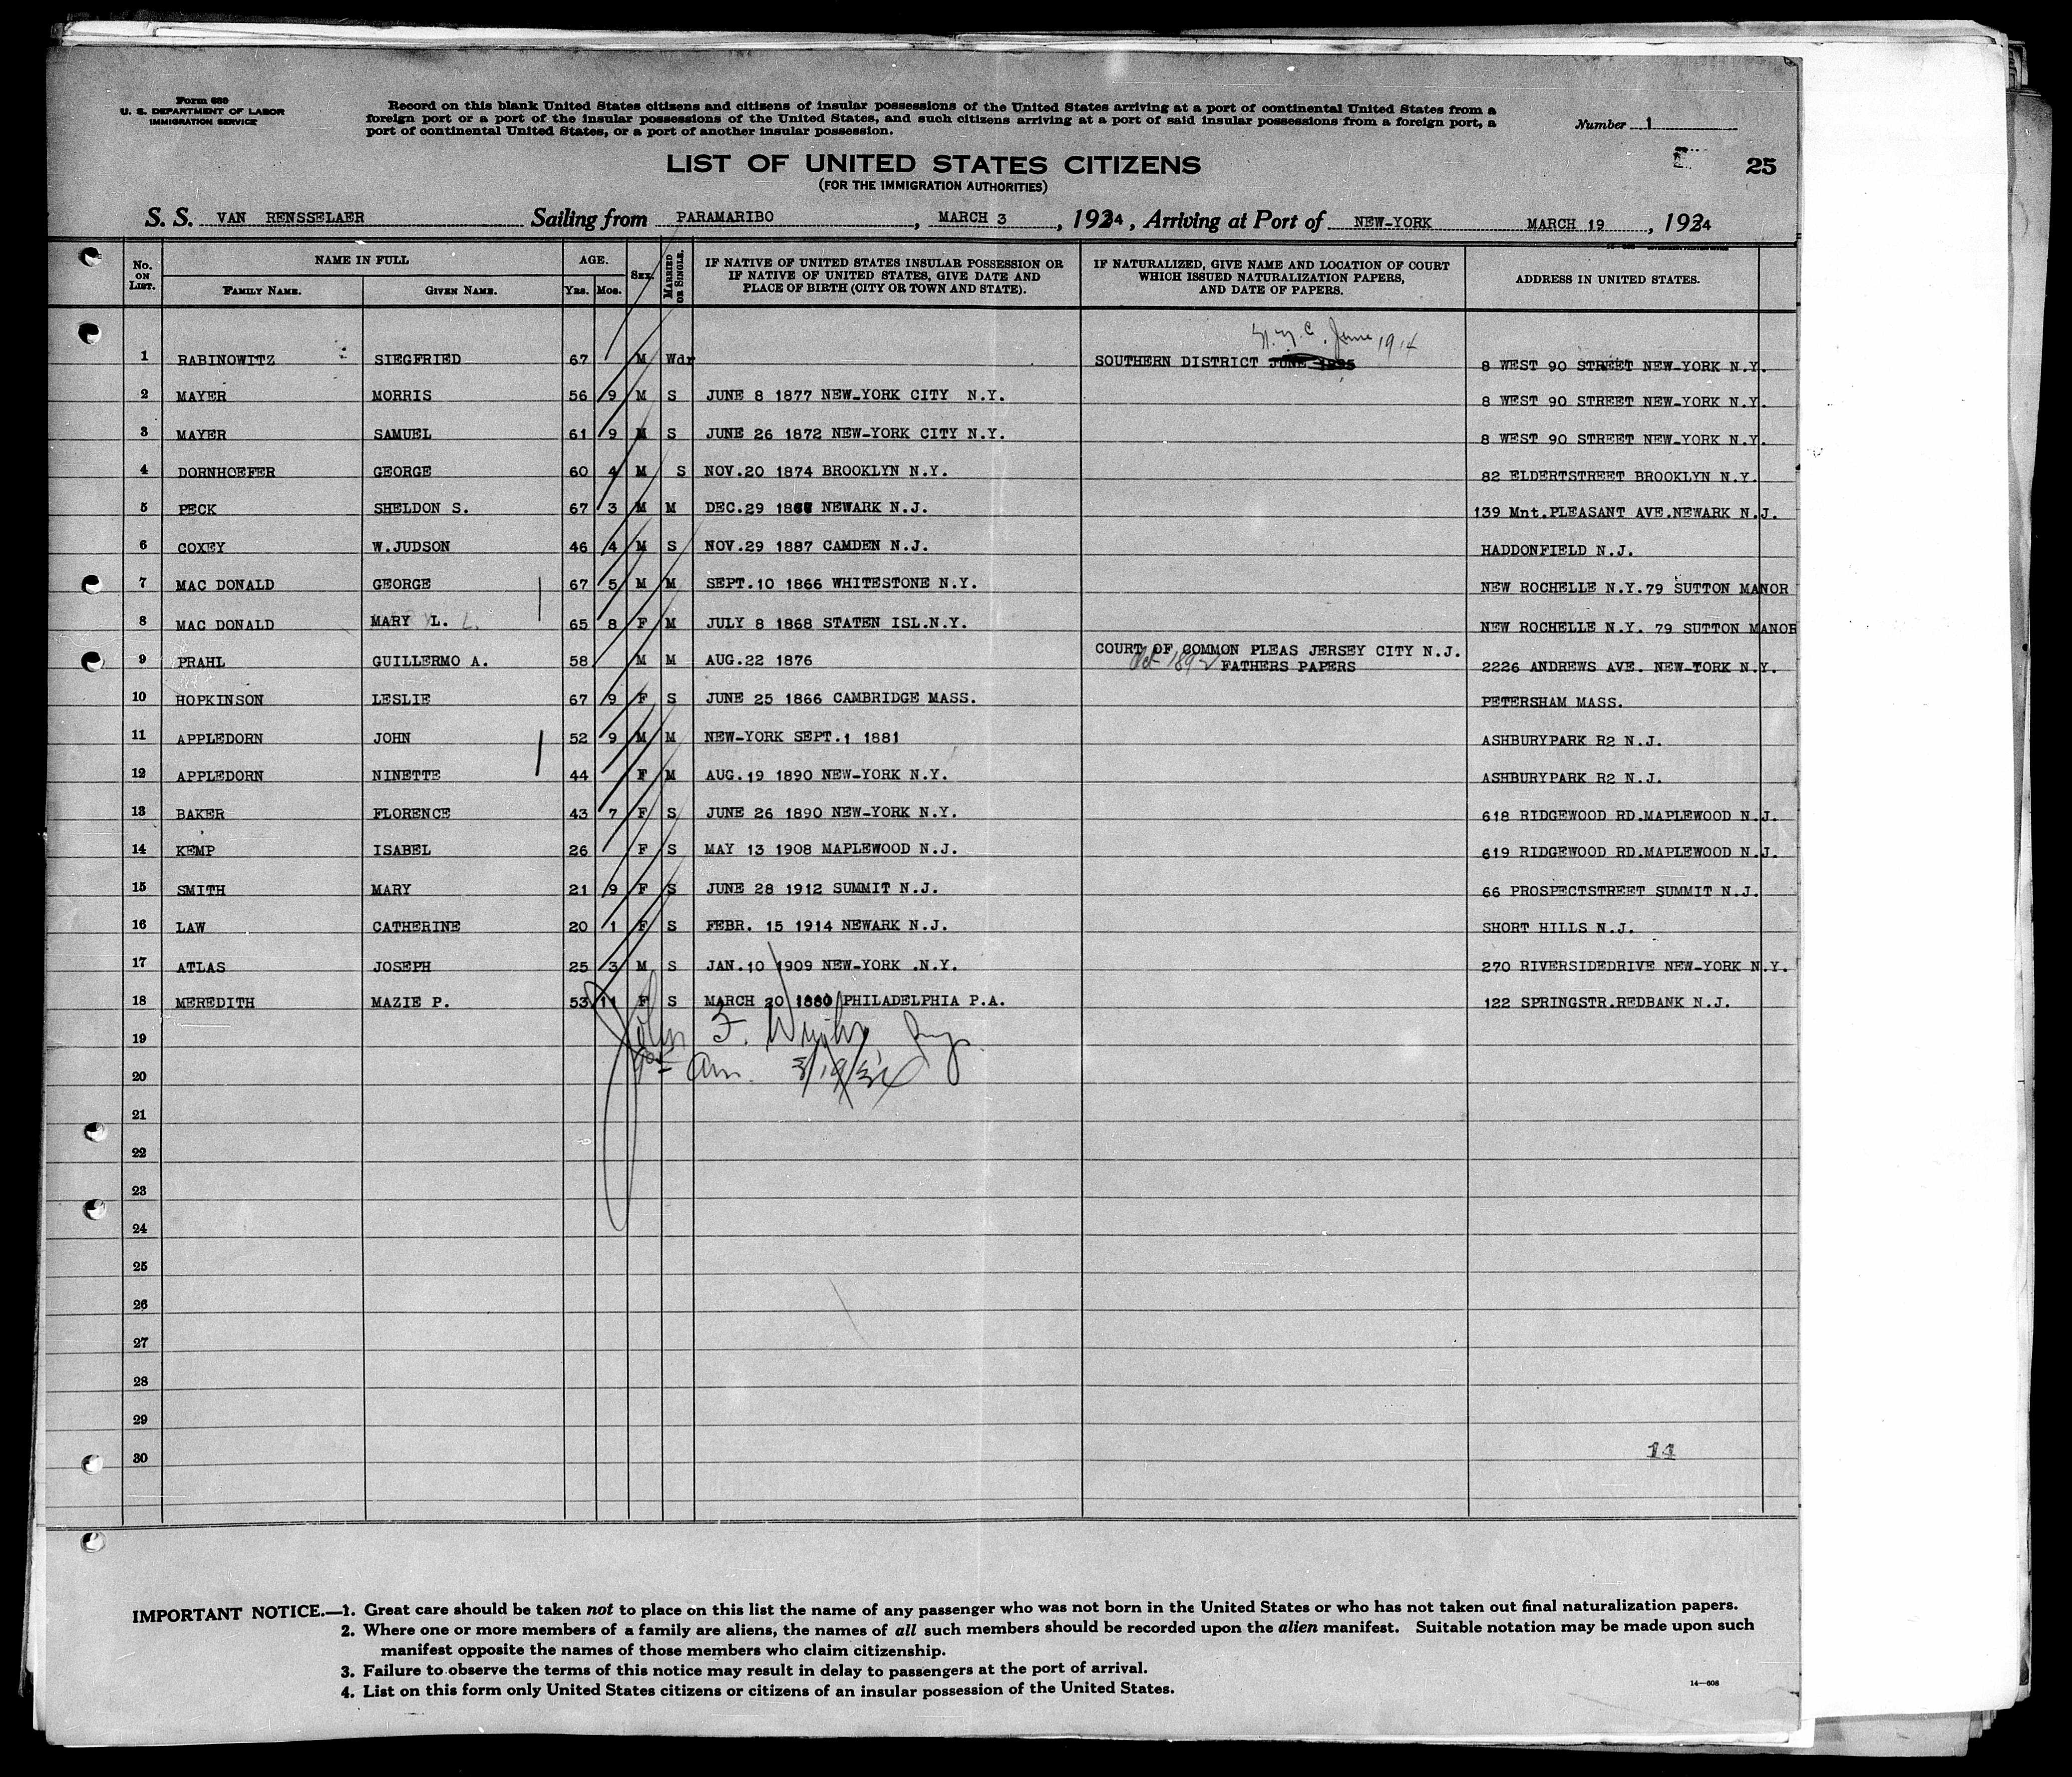 Form 630
U. S. DEPARTMENT OF LABOR
IMMIGRATION SERVICE
Record on this blank United States citizens and citizens of insular possessions of the United States arriving at a port of continental United States from a
foreign port or a port of the insular possessions of the United States, and such citizens arriving at a port of said insular possessions from a foreign port, a
port of continental United States, or a port of another insular possession.
Number 1
25
LIST OF UNITED STATES CITIZENS
(FOR THE IMMIGRATION AUTHORITIES)
S. S. VAN RENSSELAER Sailing from PARAMARIBO , MARCH 3 , 1934 , Arriving at Port of NEW-YORK MARCH 19 , 1934
No. ON LIST. NAME IN FULL FAMILY NAME. GIVEN NAME. AGE. YRS. MOS. SEX. MARRIED OR SINGLE. IF NATIVE OF UNITED STATES INSULAR POSSESSION OR IF NATIVE OF UNITED STATES, GIVE DATE AND PLACE OF BIRTH (CITY OR TOWN AND STATE). IF NATURALIZED, GIVE NAME AND LOCATION OF COURT WHICH ISSUED NATURALIZATION PAPERS, AND DATE OF PAPERS. ADDRESS IN UNITED STATES.
N.Y.C. June 1914
1 RABINOWITZ SIEGFRIED 67 M Wdr SOUTHERN DISTRICT JUNE 1895 8 WEST 90 STREET NEW-YORK N.Y.
2 MAYER MORRIS 56 9 M S JUNE 8 1877 NEW-YORK CITY N.Y. 8 WEST 90 STREET NEW-YORK N.Y.
3 MAYER SAMUEL 61 9 M S JUNE 26 1872 NEW-YORK CITY N.Y. 8 WEST 90 STREET NEW-YORK N.Y.
4 DORNHOEFER GEORGE 60 4 M S NOV.20 1874 BROOKLYN N.Y. 82 ELDERTSTREET BROOKLYN N.Y.
5 PECK SHELDON S. 67 3 M M DEC.29 1866 NEWARK N.J. 139 Mnt.PLEASANT AVE.NEWARK N.J.
6 COXEY W.JUDSON 46 4 M S NOV.29 1887 CAMDEN N.J. HADDONFIELD N.J.
7 MAC DONALD GEORGE 67 5 M M SEPT.10 1866 WHITESTONE N.Y. NEW ROCHELLE N.Y.79 SUTTON MANOR
8 MAC DONALD MARY L. L. 65 8 F M JULY 8 1868 STATEN ISL.N.Y. NEW ROCHELLE N.Y. 79 SUTTON MANOR
9 PRAHL GUILLERMO A. 58 M M AUG.22 1876 COURT OF COMMON PLEAS JERSEY CITY N.J.
Oct 1892 FATHERS PAPERS 2226 ANDREWS AVE. NEW-YORK N.Y.
10 HOPKINSON LESLIE 67 9 F S JUNE 25 1866 CAMBRIDGE MASS. PETERSHAM MASS.
11 APPLEDORN JOHN 52 9 M M NEW-YORK SEPT.1 1881 ASHBURYPARK R2 N.J.
12 APPLEDORN NINETTE 44 F M AUG.19 1890 NEW-YORK N.Y. ASHBURYPARK R2 N.J.
13 BAKER FLORENCE 43 7 F S JUNE 26 1890 NEW-YORK N.Y. 618 RIDGEWOOD RD.MAPLEWOOD N.J.
14 KEMP ISABEL 26 F S MAY 13 1908 MAPLEWOOD N.J. 619 RIDGEWOOD RD.MAPLEWOOD N.J.
15 SMITH MARY 21 9 F S JUNE 28 1912 SUMMIT N.J. 66 PROSPECTSTREET SUMMIT N.J.
16 LAW CATHERINE 20 1 F S FEBR. 15 1914 NEWARK N.J. SHORT HILLS N.J.
17 ATLAS JOSEPH 25 3 M S JAN.10 1909 NEW-YORK .N.Y. 270 RIVERSIDEDRIVE NEW-YORK N.Y.
18 MEREDITH MAZIE P. 53 11 F S MARCH 20 1880 PHILADELPHIA P.A. 122 SPRINGSTR.REDBANK N.J.
19 John F.
20 3/19/34
21
22
23
24
25
26
27
28
29
30 14
IMPORTANT NOTICE.—1. Great care should be taken not to place on this list the name of any passenger who was not born in the United States or who has not taken out final naturalization papers.
2. Where one or more members of a family are aliens, the names of all such members should be recorded upon the alien manifest. Suitable notation may be made upon such
manifest opposite the names of those members who claim citizenship.
3. Failure to observe the terms of this notice may result in delay to passengers at the port of arrival.
4. List on this form only United States citizens or citizens of an insular possession of the United States.
14—608